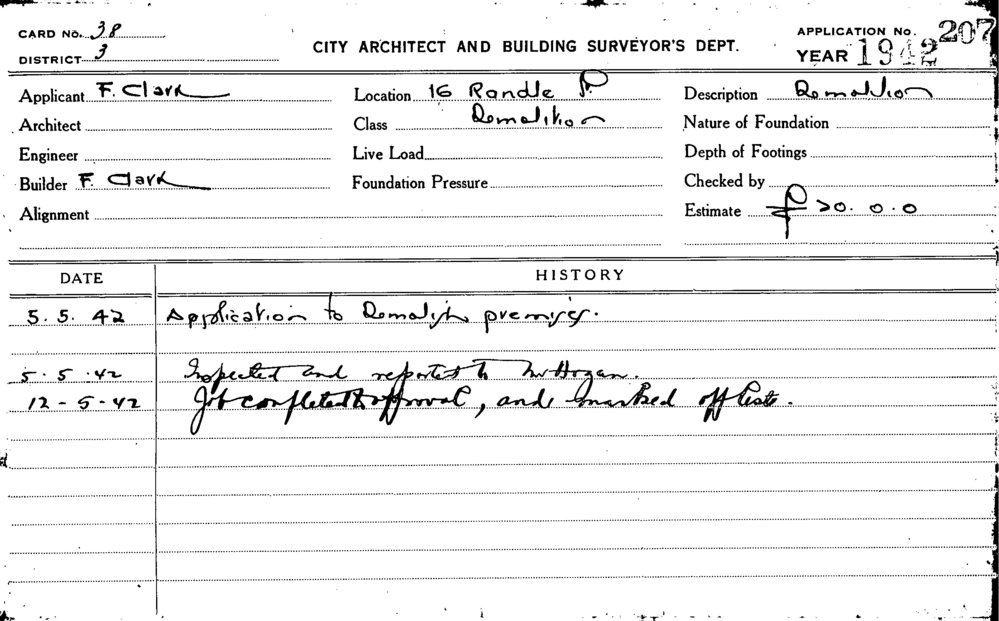 CARD No. 38
DISTRICT 3
CITY ARCHITECT AND BUILDING SURVEYOR'S DEPT.
APPLICATION No. 207
YEAR 1942
Applicant F. Clark
Location 16 Randle
Description Demolition
Architect
Class Demolition
Nature of Foundation
Engineer
Live Load
Depth of Footings
Builder F. Clark
Foundation Pressure
Checked by
Alignment
Estimate £ 0.0
DATE HISTORY
5.5.42 Application to Demolish premises.
5.5.42 Inspected and reported to Mr Hogan.
12-5-42 Job completed to approval, and marked off list.